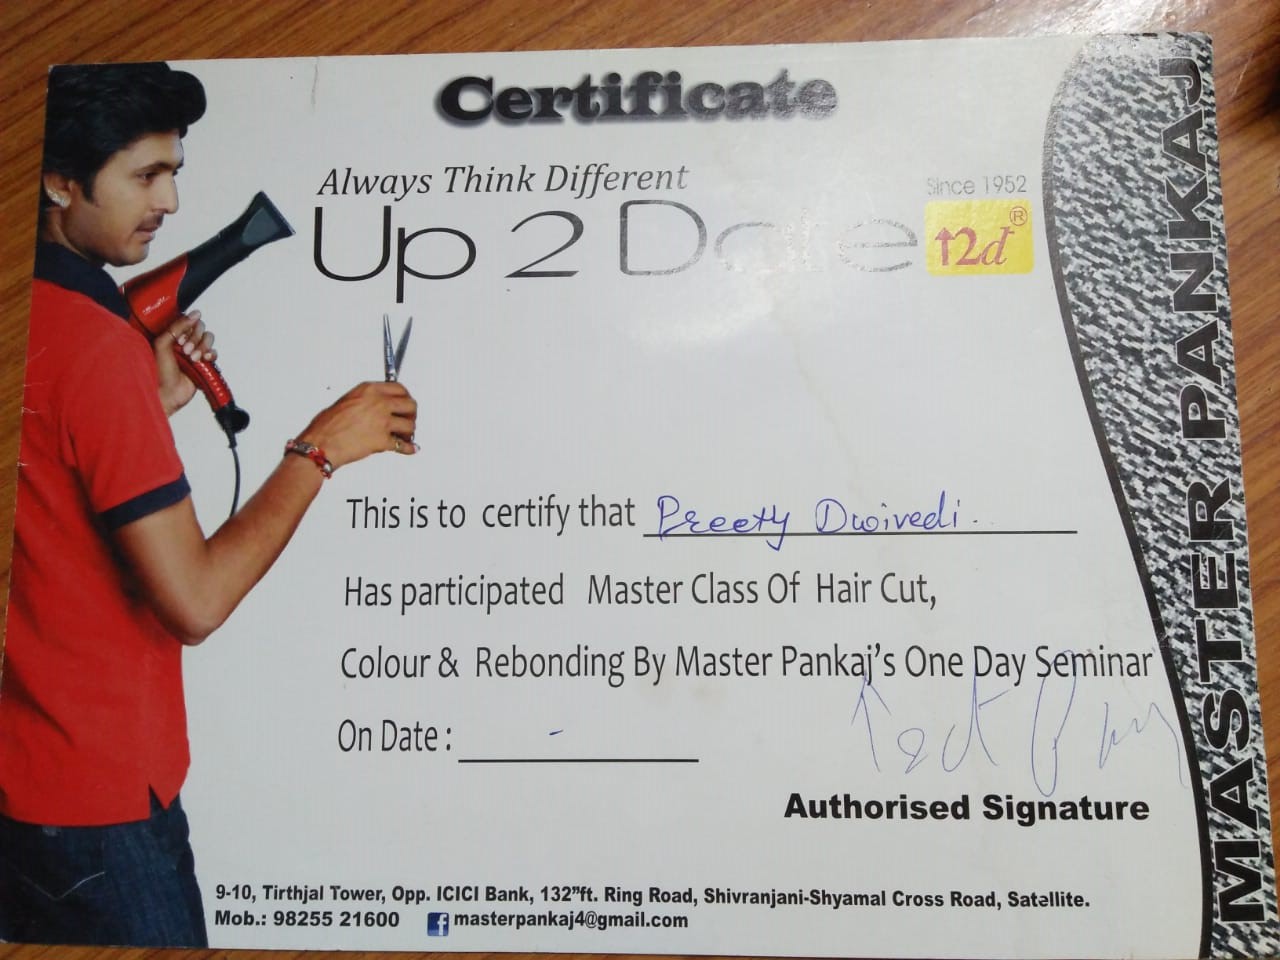 Certificate
Always Think Different
Up 2 Date
Since 1952
12d ®
MASTER PANKAJ
This is to certify that Preety Dwivedi.
Has participated Master Class Of Hair Cut,
Colour & Rebonding By Master Pankaj's One Day Seminar
On Date : -
Authorised Signature
9-10, Tirthjal Tower, Opp. ICICI Bank, 132”ft. Ring Road, Shivranjani-Shyamal Cross Road, Satellite.
Mob.: 98255 21600 f masterpankaj4@gmail.com